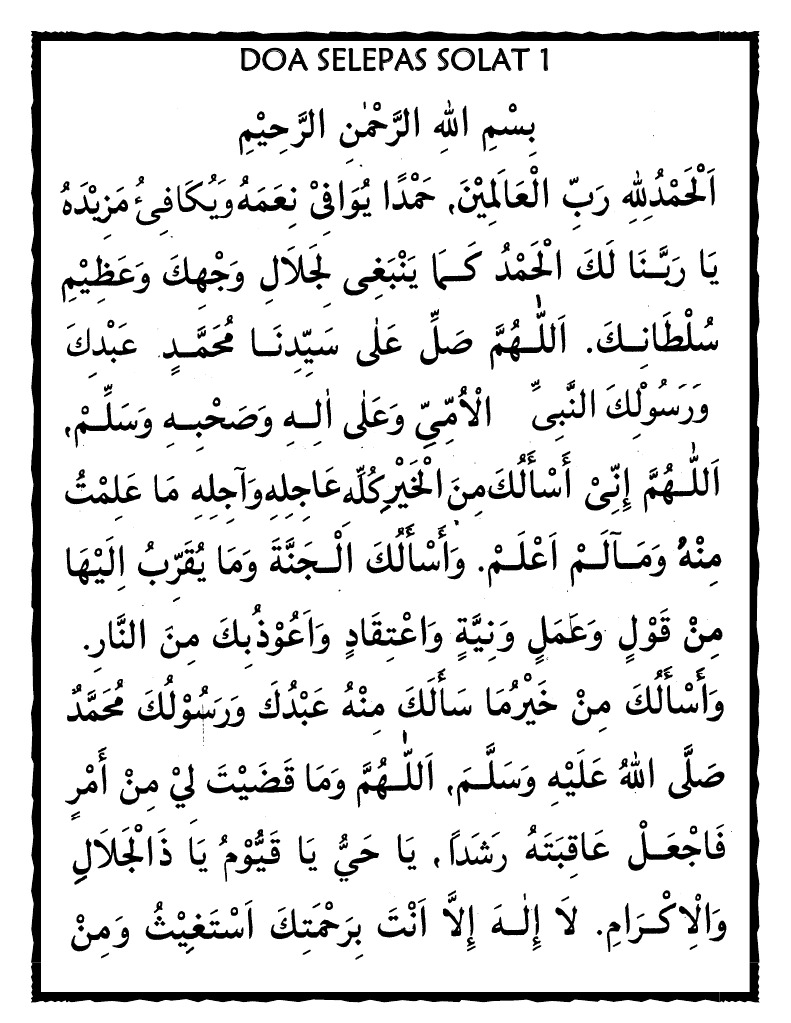 DOA SELEPAS SOLAT 1
بِسْمِ اللهِ الرَّحْمٰنِ الرَّحِيْمِ
اَلْحَمْدُلِلهِ رَبِّ الْعَالَمِيْنَ, حَمْدًا يُوَافِيْ نِعَمَهُ وَيُكَافِئُ مَزِيْدَهُ
يَا رَبَّنَا لَكَ الْحَمْدُ كَمَا يَنْبَغِى لِجَلَالِ وَجْهِكَ وَعَظِيْمِ
سُلْطَانِكَ. اَللّٰهُمَّ صَلِّ عَلٰى سَيِّدِنَا مُحَمَّدٍ عَبْدِكَ
وَرَسُوْلِكَ النَّبِىِّ الْاُمِّيِّ وَعَلٰى اٰلِهِ وَصَحْبِهِ وَسَلِّمْ,
اَللّٰهُمَّ إِنِّىْ أَسْأَلُكَ مِنَ الْخَيْرِ كُلِّهِ عَاجِلِهِ وَآجِلِهِ مَا عَلِمْتُ
مِنْهُ وَمَآلَمْ اَعْلَمْ. وَأَسْأَلُكَ الْجَنَّةَ وَمَا يُقَرِّبُ اِلَيْهَا
مِنْ قَوْلٍ وَعَمَلٍ وَنِيَّةٍ وَاعْتِقَادٍ وَاَعُوْذُبِكَ مِنَ النَّارِ.
وَأَسْأَلُكَ مِنْ خَيْرُمَا سَأَلَكَ مِنْهُ عَبْدُكَ وَرَسُوْلُكَ مُحَمَّدٌ
صَلَّى اللهُ عَلَيْهِ وَسَلَّمَ, اَللّٰهُمَّ وَمَا قَضَيْتَ لِيْ مِنْ أَمْرٍ
فَاجْعَلْ عَاقِبَتَهُ رَشَدًا, يَا حَيُّ يَا قَيُّوْمُ يَا ذَالْجَلَالِ
وَالْاِكْرَامِ. لَا إِلٰهَ إِلَّا اَنْتَ بِرَحْمَتِكَ اَسْتَغِيْثُ وَمِنْ